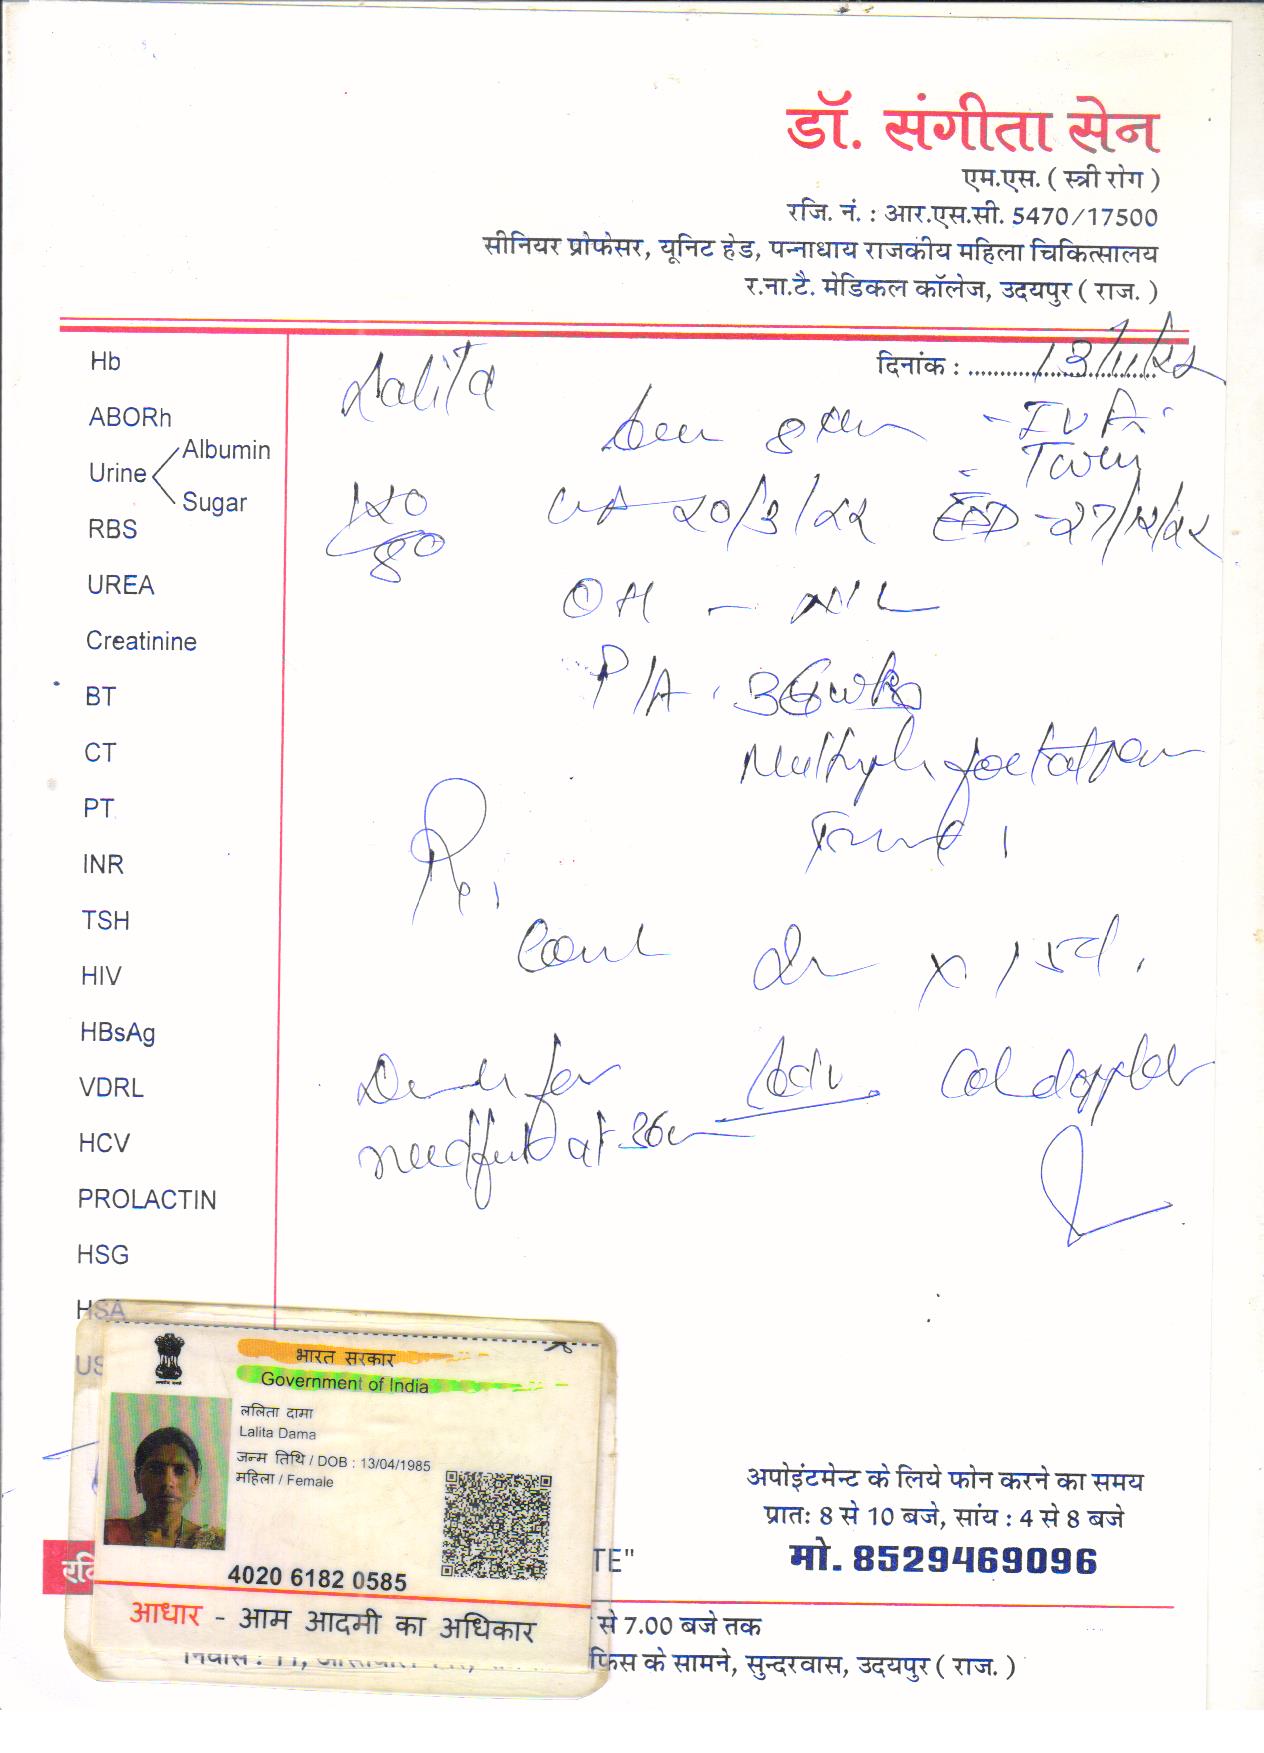 डॉ. संगीता सेन
एम.एस. ( स्त्री रोग )
रजि. नं. : आर.एस.सी. 5470/17500
सीनियर प्रोफेसर, यूनिट हेड, पन्नाधाय राजकीय महिला चिकित्सालय
र.ना.टै. मेडिकल कॉलेज, उदयपुर ( राज. )
दिनांक : 13/11/22
Hb
ABORh
Urine
Albumin
Sugar
RBS
UREA
Creatinine
BT
CT
PT
INR
TSH
HIV
HBsAg
VDRL
HCV
PROLACTIN
HSG
HSA
US
Lalita
IVF
Twin
120
80
20/3/22 EDD - 27/12/22
OH - NIL
P/A. 36 wks
Multiple
Rx,
Cont x 15d.
for Adv. Col doppler
needful at 36w
भारत सरकार
Government of India
ललिता दामा
Lalita Dama
जन्म तिथि / DOB : 13/04/1985
महिला / Female
4020 6182 0585
आधार - आम आदमी का अधिकार
अपोइंटमेन्ट के लिये फोन करने का समय
प्रातः 8 से 10 बजे, सांय : 4 से 8 बजे
मो. 8529469096
TE"
से 7.00 बजे तक
के सामने, सुन्दरवास, उदयपुर ( राज. )